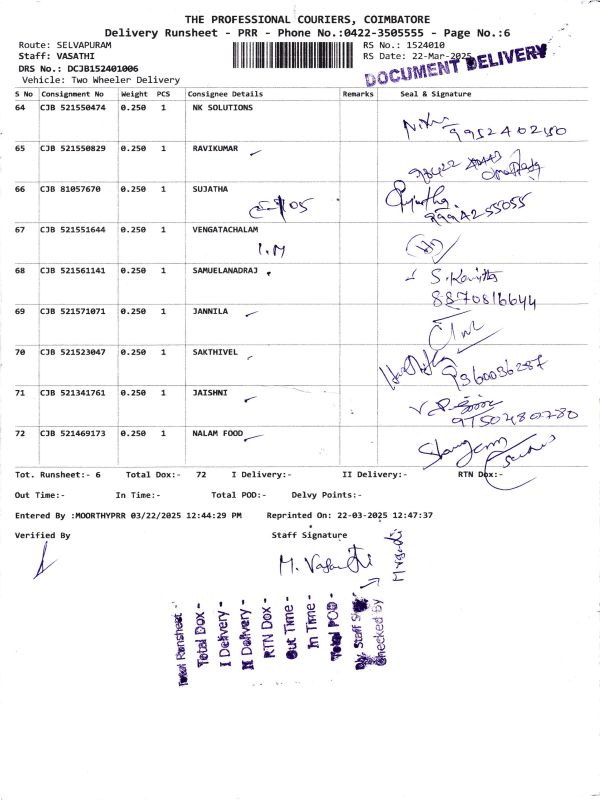 THE PROFESSIONAL COURIERS, COIMBATORE
Delivery Runsheet - PRR - Phone No.:0422-3505555 - Page No.:6
Route: SELVAPURAM
Staff: VASATHI
DRS No.: DCJB152401006
Vehicle: Two Wheeler Delivery
RS No.: 1524010
RS Date: 22-Mar-2025
DOCUMENT DELIVERY
S No Consignment No Weight PCS Consignee Details Remarks Seal & Signature
64 CJB 521550474 0.250 1 NK SOLUTIONS
65 CJB 521550829 0.250 1 RAVIKUMAR
66 CJB 81057670 0.250 1 SUJATHA
9994255055
67 CJB 521551644 0.250 1 VENGATACHALAM
I.M
68 CJB 521561141 0.250 1 SAMUELANADRAJ
S. Kavitha
8870816644
69 CJB 521571071 0.250 1 JANNILA
70 CJB 521523047 0.250 1 SAKTHIVEL
9360036287
71 CJB 521341761 0.250 1 JAISHNI
9750480780
72 CJB 521469173 0.250 1 NALAM FOOD
Tot. Runsheet:- 6 Total Dox:- 72 I Delivery:- II Delivery:- RTN Dox:-
Out Time:- In Time:- Total POD:- Delvy Points:-
Entered By :MOORTHYPRR 03/22/2025 12:44:29 PM Reprinted On: 22-03-2025 12:47:37
Verified By Staff Signature
M. Vasathi
Total Runsheet -
Total Dox -
I Delivery -
II Delivery -
RTN Dox -
Out Time -
In Time -
Total POD -
Checked By